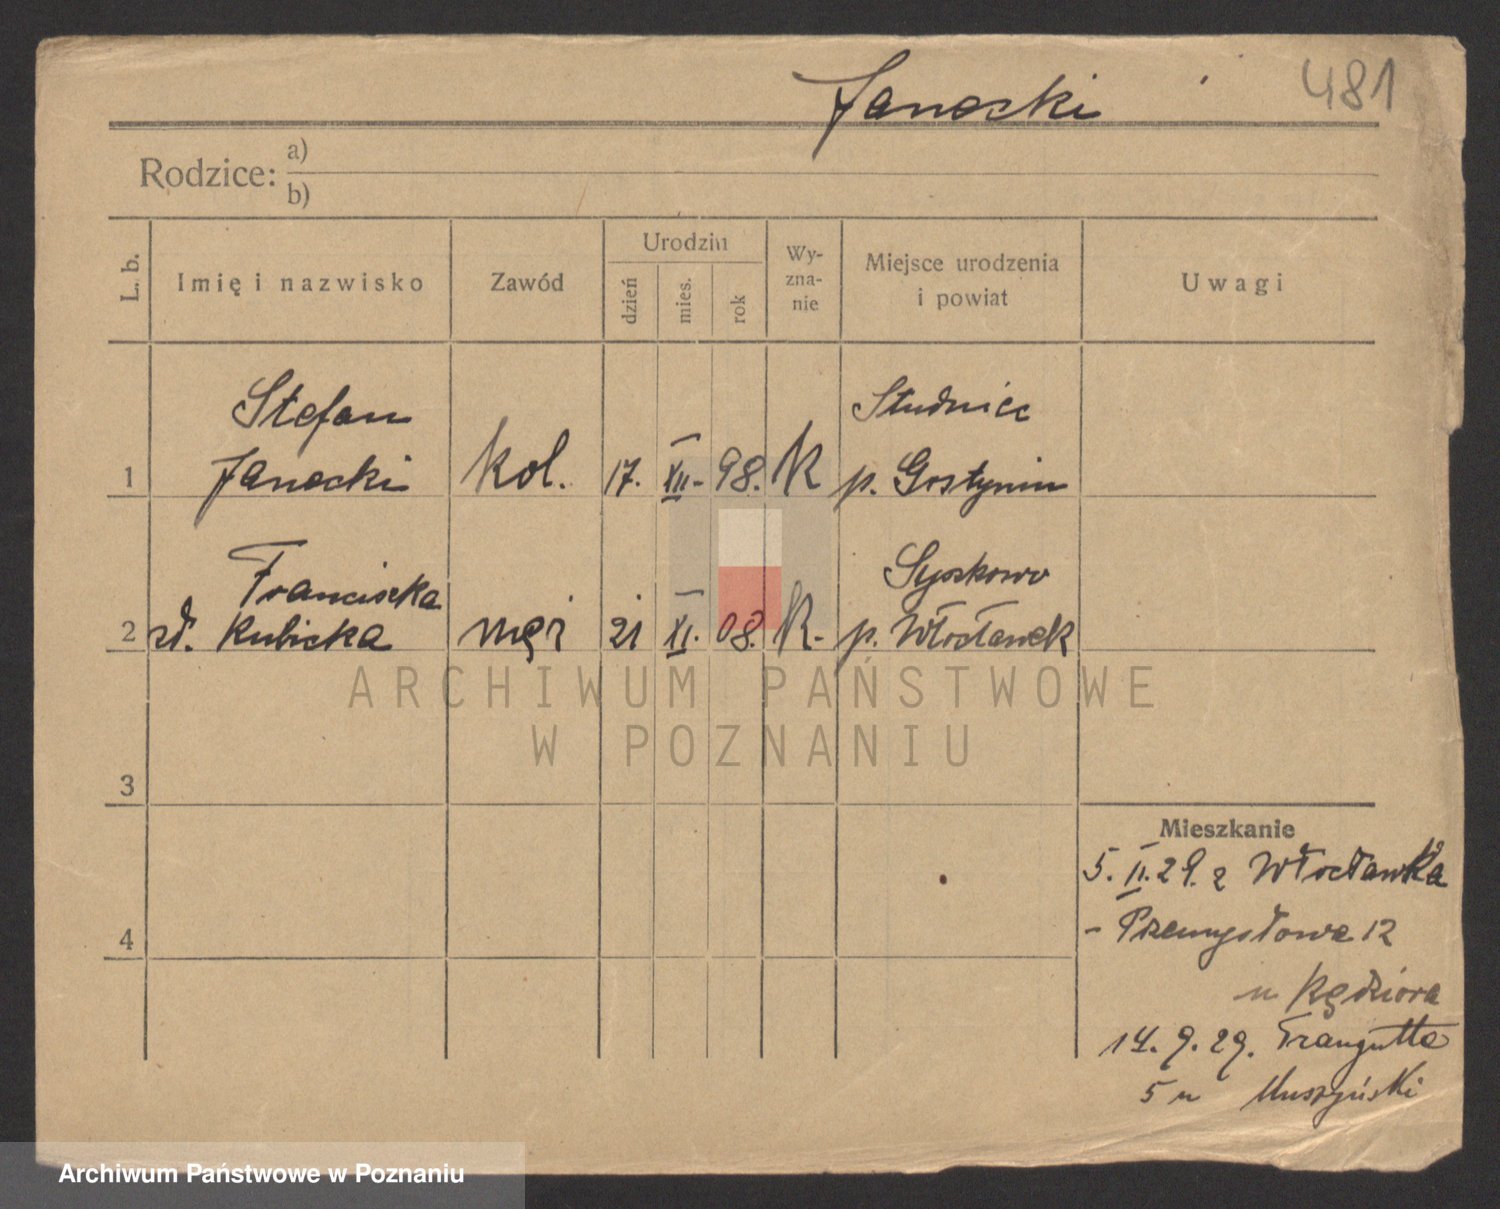 481
Janocki
Rodzice: a)
b)
L. b.
Imię i nazwisko
Zawód
Urodzin
dzień
mies.
rok
Wy-
zna-
nie
Miejsce urodzenia
i powiat
Uwagi
1
Stefan
Janocki
kol.
17.
XII.
98.
K
Studniec
p. Gostynin
2
Franciszka
zd. Kubicka
męż
21
XI.
08.
K.
Syszkowo
p. Włocławek
3
4
Mieszkanie
5. II. 29. z Włocławka
- Przemysłowa 12
u Kędziora
14. 9. 29. Traugutta
5 u Muszyński
ARCHIWUM PAŃSTWOWE
W POZNANIU
Archiwum Państwowe w Poznaniu